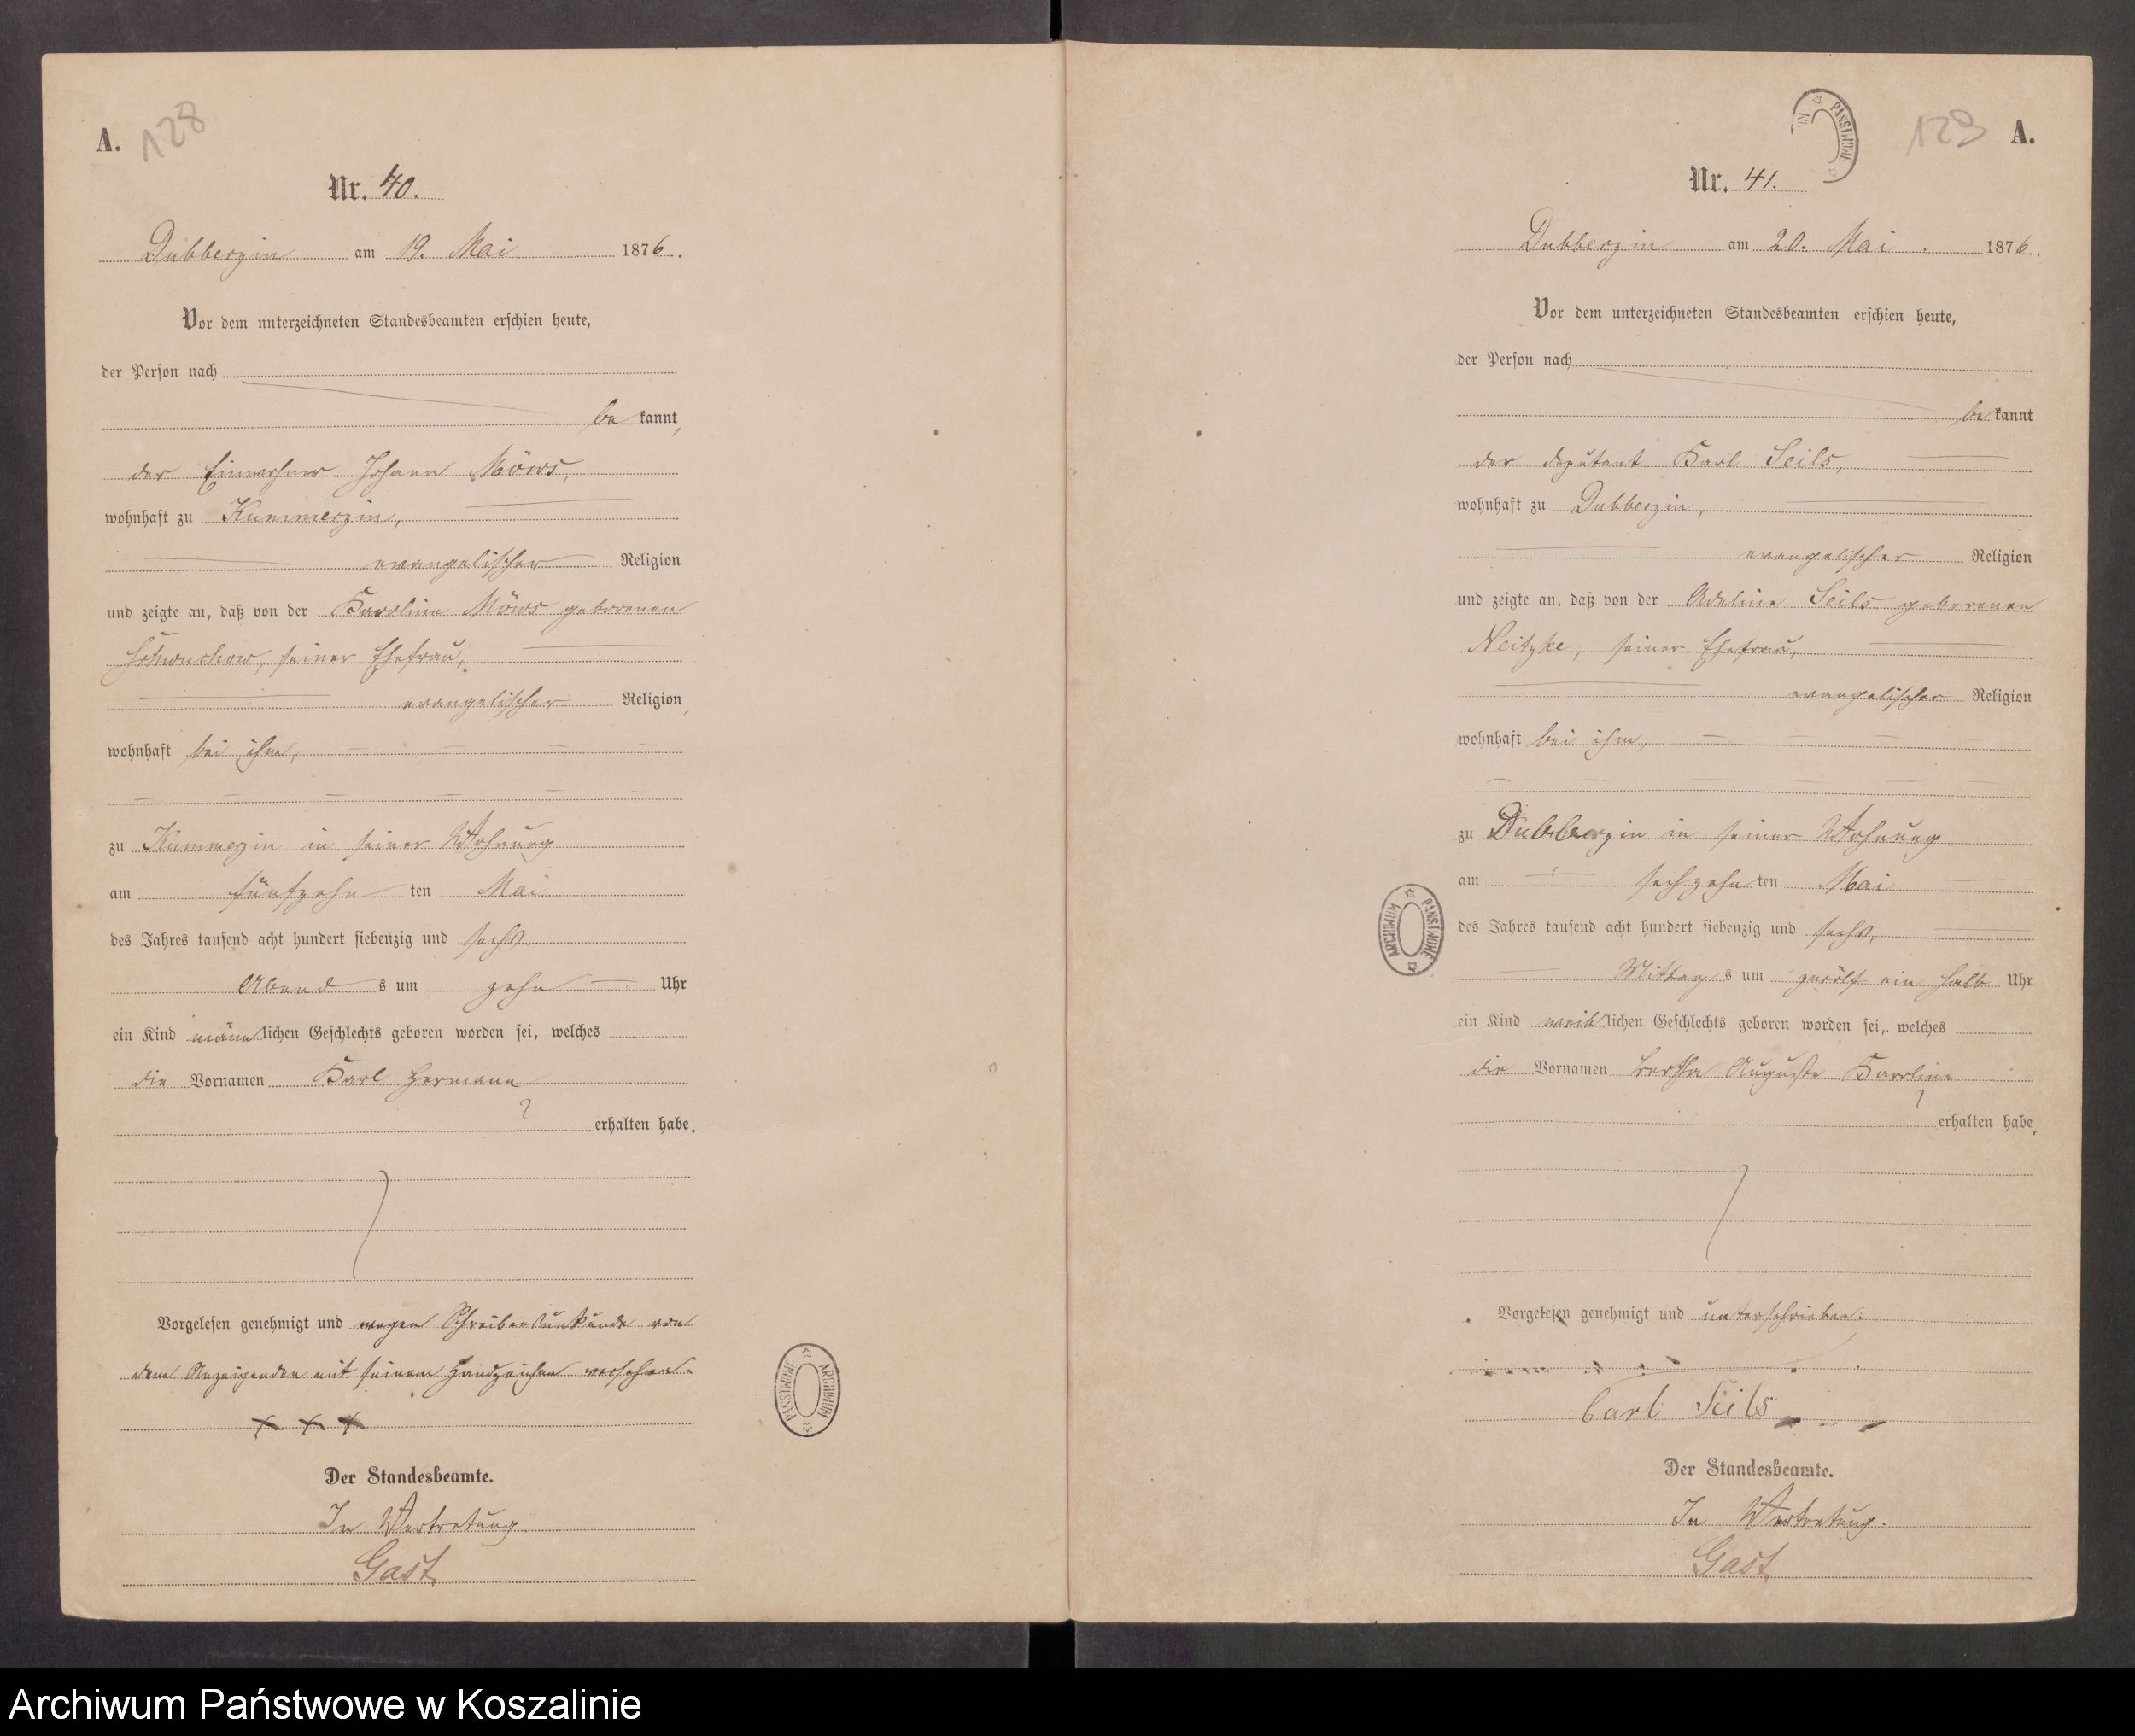 A. 128
Nr. 40.
Dubberzin am 19. Mai 1876.
Vor dem unterzeichneten Standesbeamten erschien heute,
der Person nach
be kannt,
der Einwohner Johann Möws,
wohnhaft zu Kummerzin,
evangelischer Religion
und zeigte an, daß von der Karoline Möws geborenen
seiner Ehefrau,
evangelischer Religion,
wohnhaft bei ihm,
zu Kummerzin in seiner Wohnung
am fünfzehn ten Mai
des Jahres tausend acht hundert siebenzig und sechs
Abend s um zehn Uhr
ein Kind männlichen Geschlechts geboren worden sei, welches
die Vornamen Karl Hermann
erhalten habe.
Vorgelesen genehmigt und wegen Schreibensunkunde von
dem Anzeigenden mit seinem Handzeichen versehen.
x x x
Der Standesbeamte.
In Vertretung
Gast.
ARCHIWUM PAŃSTWOWE
129 A.
PAŃSTWOWE
Nr. 41.
Dubberzin am 20. Mai. 1876.
Vor dem unterzeichneten Standesbeamten erschien heute,
der Person nach
be kannt
der Deputant Karl Seils,
wohnhaft zu Dubberzin,
evangelischer Religion
und zeigte an, daß von der Adeline Seils geborenen
Neitzke, seiner Ehefrau,
evangelischer Religion
wohnhaft bei ihm,
zu Dubberzin in seiner Wohnung
am sechzehn ten Mai
des Jahres tausend acht hundert siebenzig und sechs,
Mittag s um zwölf ein halb Uhr
ein Kind weiblichen Geschlechts geboren worden sei, welches
die Vornamen Bertha Auguste Karoline
erhalten habe.
Vorgelesen genehmigt und unterschrieben:
Carl Seils
Der Standesbeamte.
In Vertretung.
Gast.
ARCHIWUM PAŃSTWOWE
Archiwum Państwowe w Koszalinie